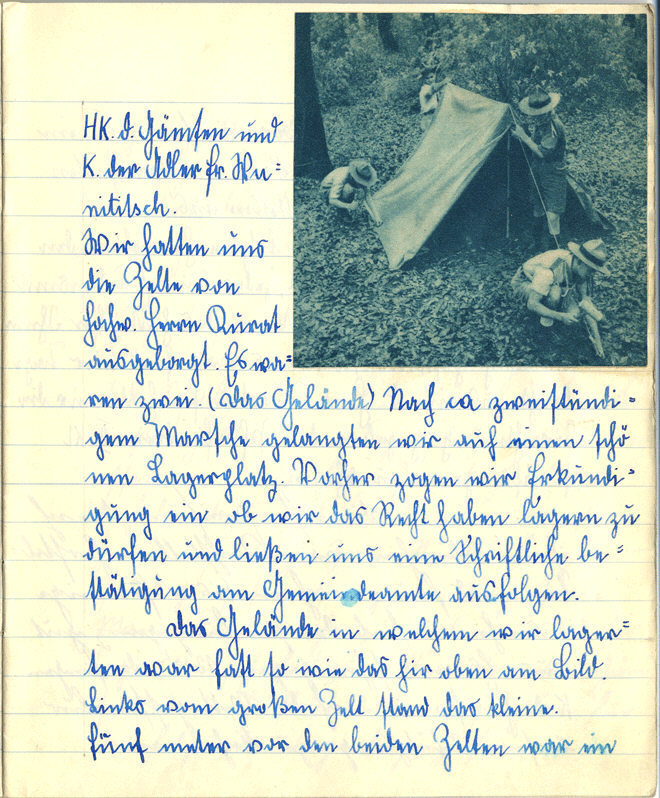 HK. d. Gämsen und
K. der Adler fr. Wa=
nitisch.
Wir hatten uns
die Zelte von
Hochw. Herrn Kurat
ausgeborgt. Es wa=
ren zwei. (Das Gelände) Nach ca zweistündi=
gem Marsche gelangten wir auf einen schö
nen Lagerplatz. Vorher zogen wir Erkundi=
gung ein ob wir das Recht haben lagern zu
dürfen und ließen uns eine Schriftliche be=
stätigung am Gemeindeamte ausfolgen.
Das Gelände in welchem wir lager=
ten war fast so wie das hir oben am Bild.
Links vom großen Zelt stand das kleine.
Fünf meter vor den beiden Zelten war ein